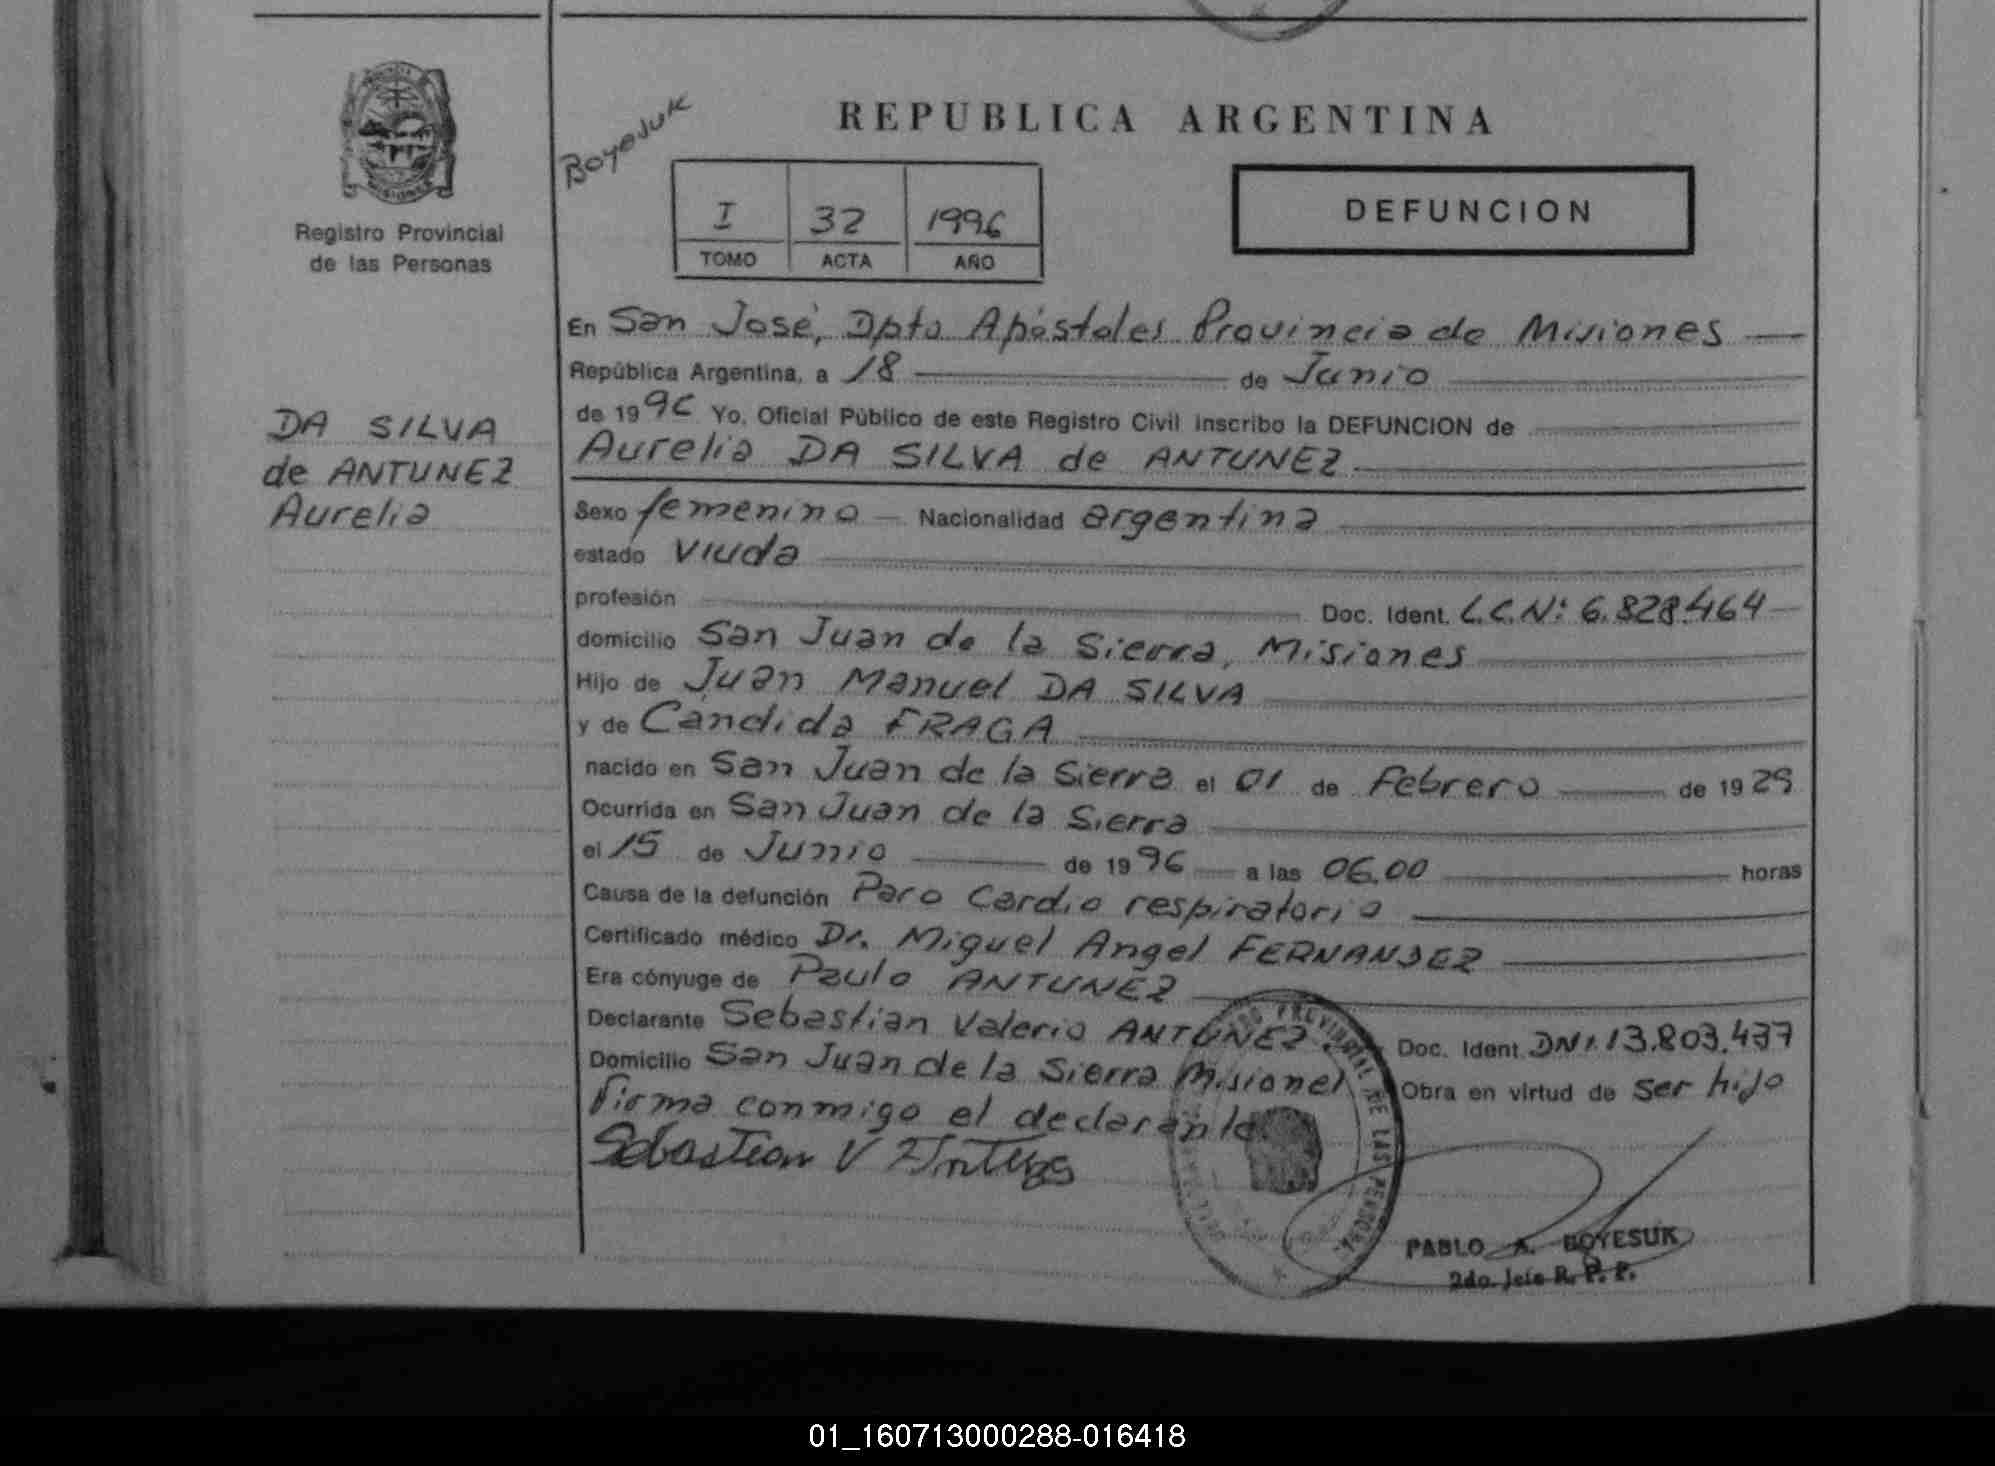 REPUBLICA ARGENTINA
Boyesuk
MISIONES
Registro Provincial
de las Personas
I 32 1996
TOMO ACTA AÑO
DEFUNCION
DA SILVA
de ANTUNEZ
Aurelia
En San José, Dpto Apóstoles Provincia de Misiones
República Argentina, a 18 de Junio
de 1996 Yo, Oficial Público de este Registro Civil inscribo la DEFUNCION de
Aurelia DA SILVA de ANTUNEZ
Sexo femenino Nacionalidad argentina
estado Viuda
profesión Doc. Ident. L.C.Nº: 6.828.464
domicilio San Juan de la Sierra, Misiones
Hijo de Juan Manuel DA SILVA
y de Cándida FRAGA
nacido en San Juan de la Sierra el 01 de Febrero de 1929
Ocurrida en San Juan de la Sierra
el 15 de Junio de 1996 a las 06.00 horas
Causa de la defunción Paro Cardio respiratorio
Certificado médico Dr. Miguel Angel FERNANDEZ
Era cónyuge de Paulo ANTUNEZ
Declarante Sebastian Valerio ANTUNEZ Doc. Ident. DNI. 13.803.437
Domicilio San Juan de la Sierra Misiones Obra en virtud de ser hijo
Firma conmigo el declarante
Sebastian V Antunes
PROVINCIAL DE LAS PERSONAS
PABLO A. BOYESUK
2do. Jefe R. P. P.
01_160713000288-016418